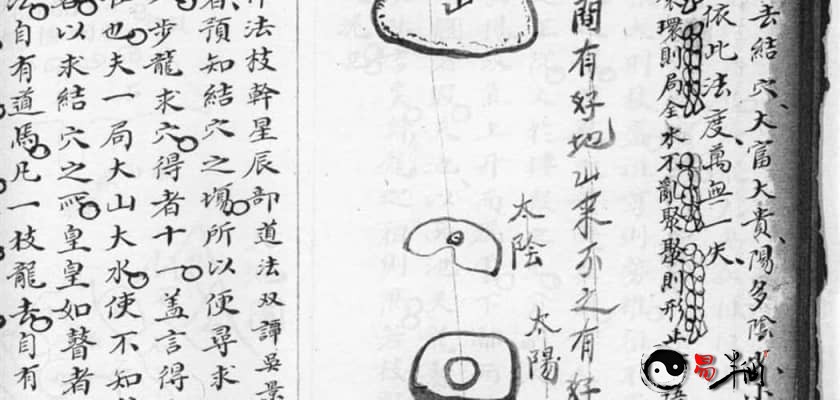 去結穴大富大貴陽多陰
依此法度萬無一失
環則局全水不亂聚聚則形止
間有好地山来不之有好
山
太陰
太陽
法枝幹星辰部道法双譚吳景
預知結穴之塲所以便尋求
步龍求穴得者十一蓋言得
也夫一局大山大水使不知
以求結穴之所皇皇如瞽者
自有道焉凡一枝龍去自有
易